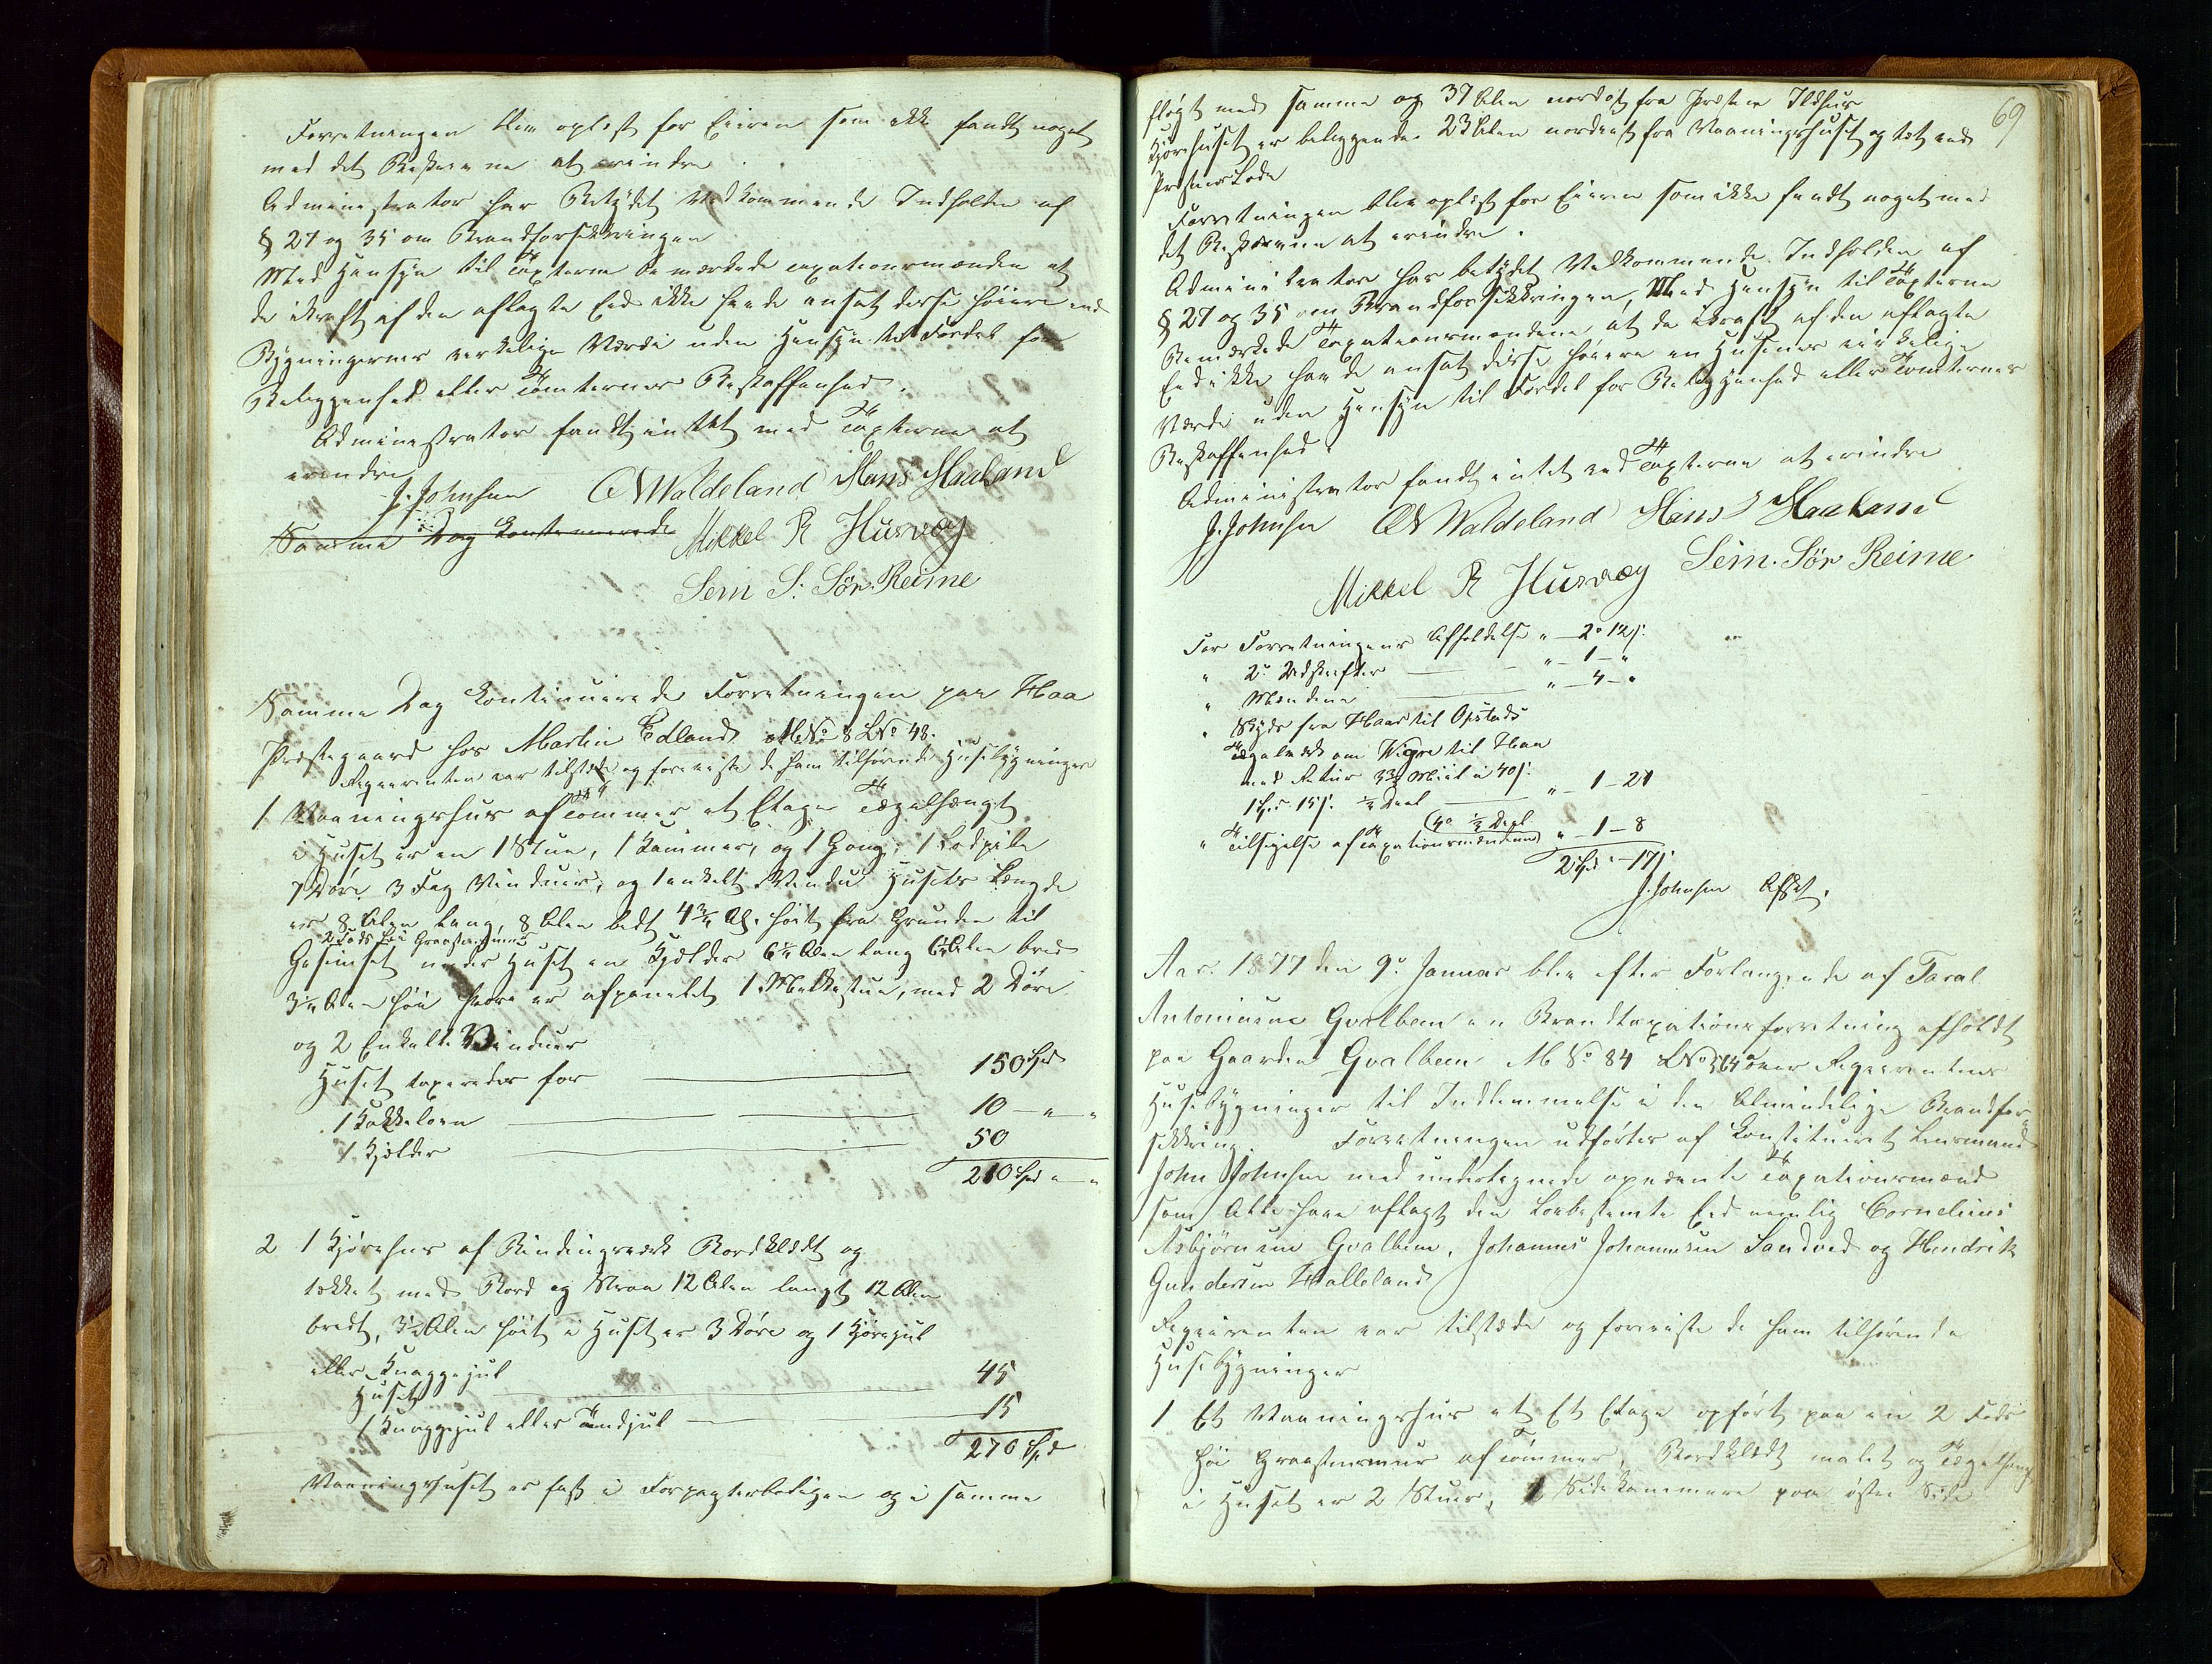 Forretningen blev oplæst for Eieren som ikke fandt noget
med det Beskrevne at erindre.
Administrator har Betydet Vedkommende Indholden af
§ 27 og 35 om Brandforsikkringen
Med Hensyn til Taxterne bemærkede taxationsmænden at
de ikraft af den aflagte Eed ikke havde ansat disse høiere end
Bygningernes virkelige Værdi uden Hensyn til Fordel for
Beliggenhed eller Tomternes Beskaffenhed.
Administrator fandt intet ved Taxterne at
erindre
J. Johnsen ON Waldeland Hans Haaland
Samme Dag Continuerede Mikkel R Husvæg
Sem S. Sør Reime
Samme Dag Continuerede Forretningen paa Haa
Præstegaard hos Martin Edland M No 8 L No 48.
Reqvirenten var tilstæde og foreviste de ham tilhørende Husebygninger
1 Vaaningshus af Tømmer et Etage Tægelhængt
i Huset er en 1 Stue, 1 Kammer, og 1 Gang, 1 Lodpibe
7 Døre 3 Fag Vinduer, og 1 enkelt Vindu Husets Længde
er 8 Alen lang, 8 Alen bredt 4¾ Al. høit fra Grunden til
2 Fods høi Graasteensmuur
Gesimset under Huset en Kjælder 6½ Alen lang 6½ Alen bred
3¼ Alen høi hvori er afpanelet 1 Melkestue, med 2 Døre
og 2 Enkelte Vinduer
Huset taxeredes for 150 Spd
1 Kakkeloen 10 — " — "
1 Kjelder 50
210 Spd " — "
2 1 Kjørehus af Bindingsværk Bordklædt og
tækket med Bord og Straa 12 Alen langt 12 Alen
bredt, 3½ Alen høit i Huset er 3 Døre og 1 Kjørejul
eller Knaggejul
Huset 45
1 Knaggejul eller Tandjul 15
270 Spd
Vaaningshuset er fast i Forpagterboligen og i samme
69
fløgt med samme og 37 Alen nordost fra Præstens Ildhus
Kjørehuset er beliggende 23 Alen nordvest fra Vaaningshuset og tæt ved
Præstens Lade
Forretningen blev oplæst for Eieren som ikke fandt noget med
det Beskrevne at erindre.
Administrator har betydet Vedkommende Indholden af
§ 27 og 35 om Brandforsikkringen, Med Hensyn til Taxterne
Bemærkede Taxationsmændene at de ikraft af den aflagte
Eed ikke havde ansat disse høiere en Husenes virkelige
Værdi uden Hensyn til Fordel for Beliggenhed eller Tomternes
Beskaffenhed.
Administrator fandt intet ved Taxterne at erindre
J. Johnsen ON Waldeland Hans Haaland
Mikkel R Husvæg Sem. Sør Reime
For Forretningens Afholdelse " — 2 " 12 s.
" 2 Udskrifter " — 1 — "
" Mændene " — 4 — "
" Skyds fra Haar til Opstad
Tægelværk om Wigre til Haa
med Retur 3¾ Miil a 40 s.
1 Spd. 15 s. ½ Deel " — 1 — 21
" Tilsigelse af Taxationsmændene ½ Deel " — 1 — 8
2 Spd " — 17 s.
J. Johnsen Afsat.
Aar. 1877 den 9de Januar blev efter Forlangende af Taral
Antoniusen Gvalbein en Brandtaxationsforretning afholdt
paa Gaarden Gvalbein M No 84 L No 564 a over Reqvirentens
Husebygninger til Indlemmelse i den Almindelige Brandfor-
sikkring. Forretningen udførtes af Constitueret Lensmand
John Johnsen med undertegnede opnævnte Taxationsmænd
som Alle have aflagt den Lovbestemte Eed nemlig Cornelius
Asbjørnsen Gvalbein, Johannes Johannesen Sandved og Hendrik
Gundersen Halleland
Reqvirenten var tilstæde og foreviste de ham tilhørende
Husebygninger
1 Et Vaaningshus et Et Etage opført paa en 2 Fods
høi Graasteensmuur af Tømmer, Bordklædt malet og Tægelhængt
i Huset er 2 Stuer, 1 Sidekammere paa østre Side